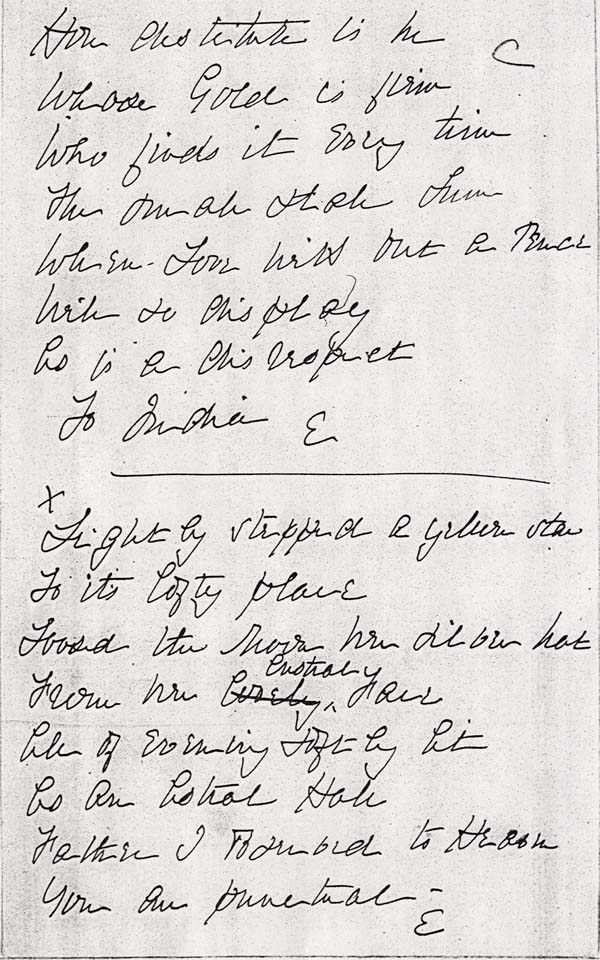 How destitute is he
C
Whose Gold is firm
Who finds it Every time
The small stale Sum
When Love with but a Pence
Will so display
As is a disrespect
To India E
x
Lightly stepped a yellow star
To its lofty place
Loosed the Moon her silver hat
Lustral
From her lovely Face
All of Evening softly lit
As an Astral Hall
Father I observed to Heaven
You are punctual -
E